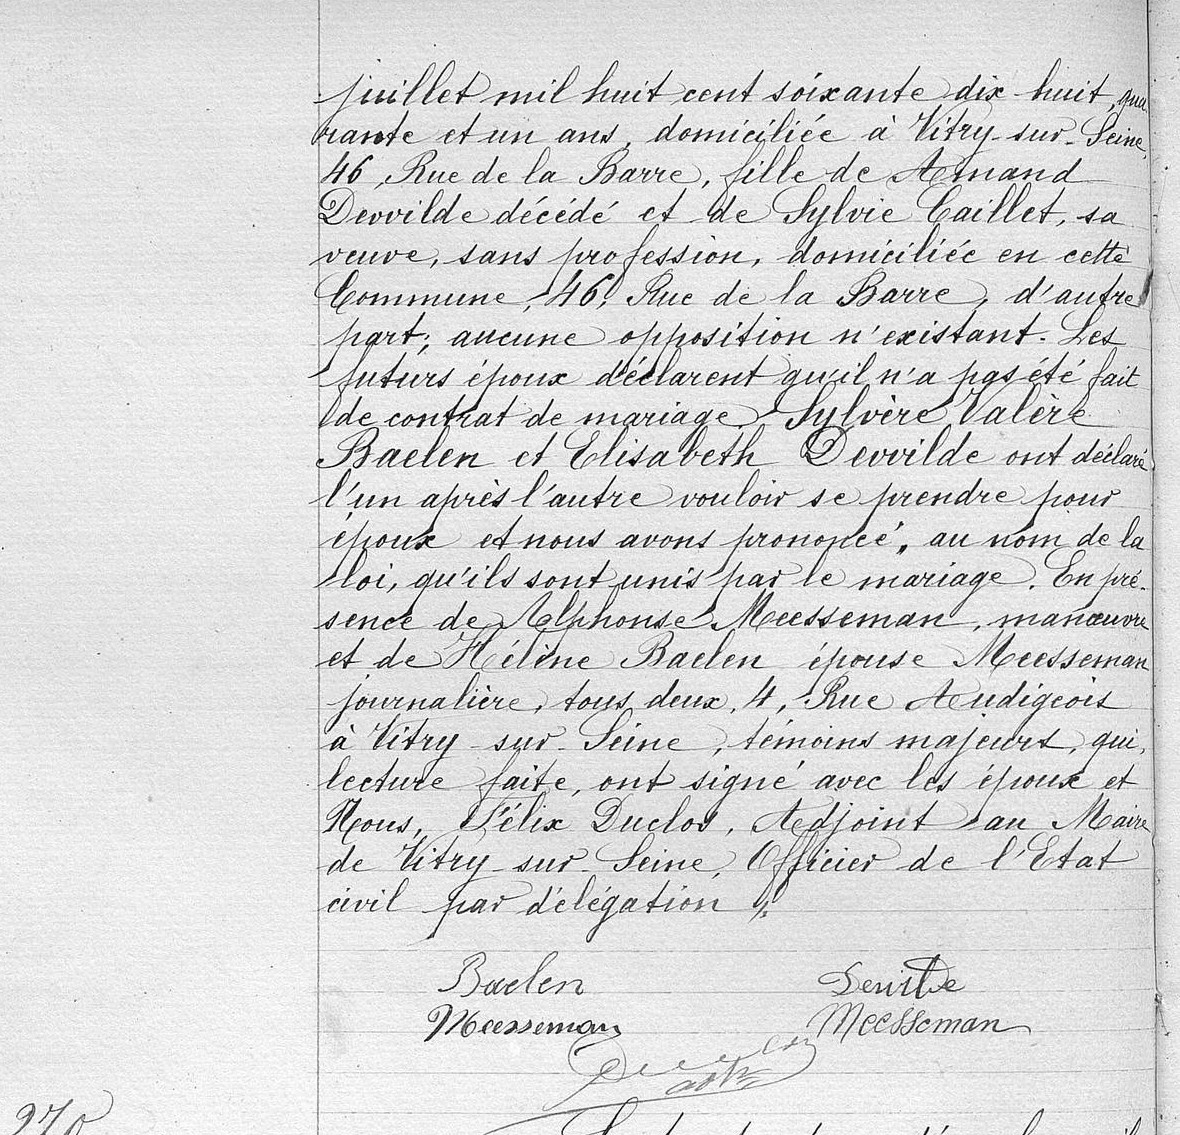 juillet mil huit cent soixante dix huit, qua
rante et un ans, domiciliée à Vitry-sur-Seine,
46, Rue de la Barre, fille de Amand
Devvilde décédé et de Sylvie Caillet, sa
veuve, sans profession, domiciliée en cette
Commune, 46, Rue de la Barre, d'autre
part; aucune opposition n'existant. Les
futurs époux déclarent qu'il n'a pas été fait
de contrat de mariage. Sylvère Valère
Baelen et Elisabeth Devvilde ont déclaré
l'un après l'autre vouloir se prendre pour
époux et nous avons prononcé, au nom de la
loi, qu'ils sont unis par le mariage. En pré-
sence de Alphonse Meesseman, manœuvre
et de Hélène Baelen épouse Meesseman
journalière, tous deux, 4, Rue Audigeois
à Vitry-sur-Seine, témoins majeurs, qui,
lecture faite, ont signé avec les époux et
Nous, Félix Duclos, Adjoint au Maire
de Vitry-sur-Seine, Officier de l'Etat
civil par délégation
Baelen
Meesseman
Meesseman
270